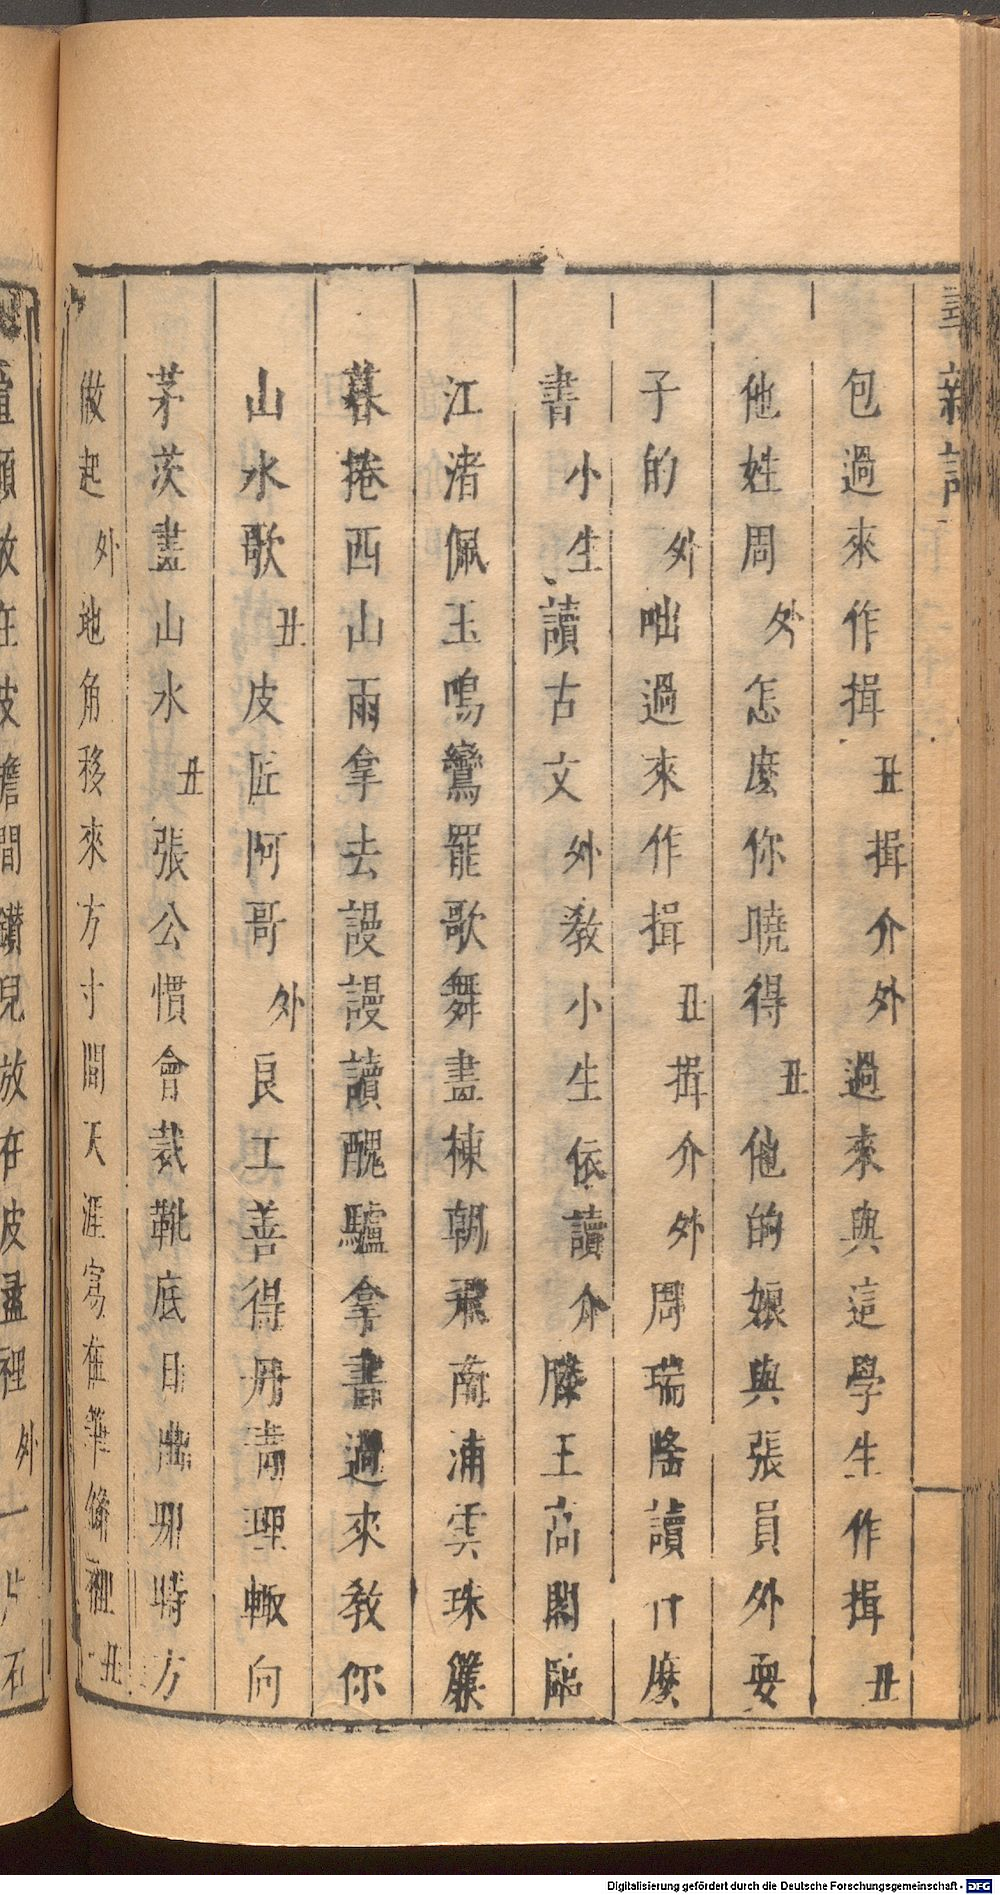 包過來作揖丑揖介外過來與這學生作揖丑
他姓周外怎麼你曉得丑他的娘與張員外耍
子的外咄過來作揖丑揖介外周瑞隆讀什麼
書小生讀古文外教小生依讀介滕王高閣臨
江渚佩玉鳴鸞罷歌舞畫棟朝飛南浦雲珠簾
暮捲西山雨拿去謾謾讀醜驢拿書過來教你
山水歌丑皮匠阿哥外良工善得丹青理輙向
茅茨畫山水丑張公慣會裁靴底日出那時方
做起外地角移來方寸間天涯寫在筆條裡丑
頭放在皮擔間鑚兒放在皮盝裡外一片石
Digitalisierung gefördert durch die Deutsche Forschungsgemeinschaft - DFG